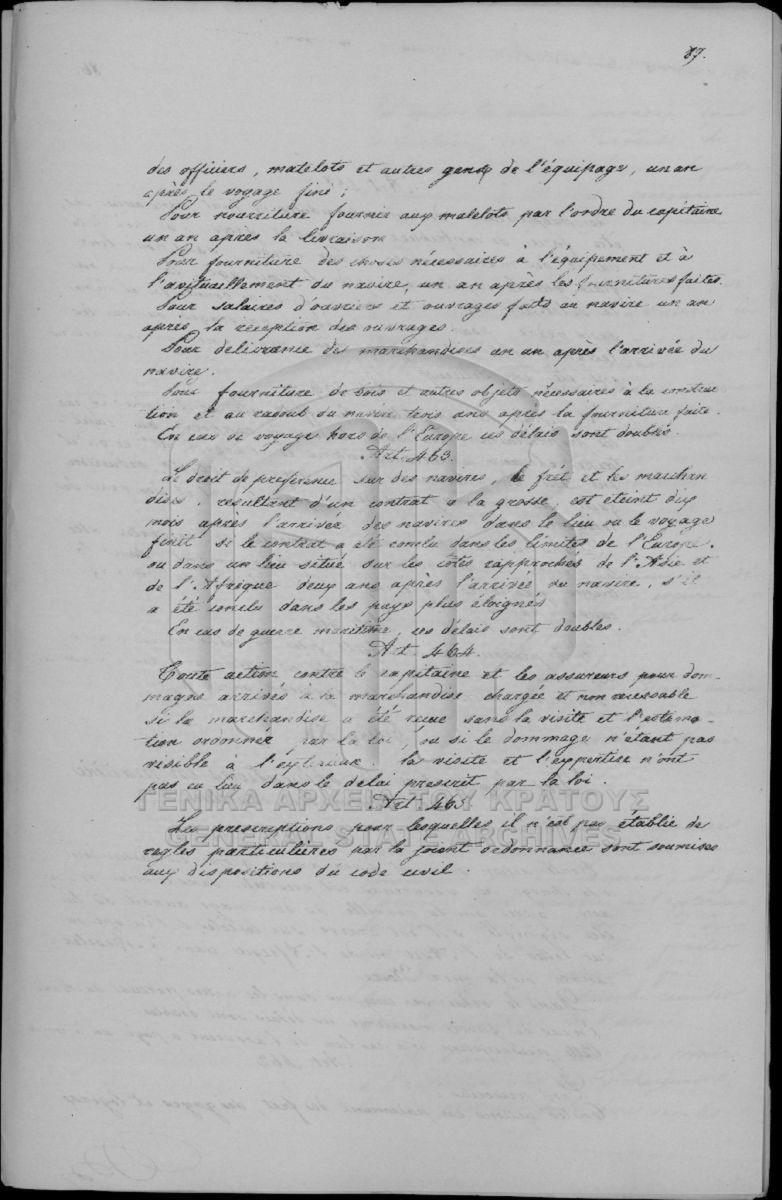 87.
des officiers, matelots et autres gens de l'équipage, un an
après le voyage fini;
Pour nourriture fournie aux matelots par l'ordre du capitaine
un an après la livraison
Pour fourniture des choses nécessaires à l'équipement et à
l'avituaillement du navire, un an après les fournitures faites.
Pour salaires d'ouvriers et ouvrages faits au navire un an
après la réception des ouvrages.
Pour délivrance de marchandises un an après l'arrivée du
navire.
Pour fourniture de bois et autres objets nécessaires à la construc
tion et au radoub du navire trois ans après la fourniture faite.
En cas de voyage hors de l'Europe ces délais sont doublés.
Art. 463.
Le droit de préférence sur des navires, le frêt et les marchan
dises, resultant d'un contrat à la grosse, est eteint dix
mois après l'arrivée des navires dans le lieu ou le voyage
finit si le contrat a été conclu dans les limites de l'Europe.
ou dans un lieu situé sur les côtes rapprochés de l'Asie et
de l'Afrique deux ans après l'arrivée du navire, s'il
a été conclu dans les pays plus éloignés
En cas de guerre maritime, ces délais sont doubles.
Art. 464.
Toute action contre le capitaine et les assureurs pour dom-
mages arrivés à la marchandise chargée et non recevable
si la marchandise a été reçue sans la visite et l'estima-
tion ordonnée par la loi, ou si le dommage n'étant pas
visible a l'exterieur, la visite et l'expertise n'ont
pas eu lieu dans le délai prescrit par la loi.
Art. 465.
Les prescriptions pour lesquelles il n'est pas établie de
regles particulières par la ordonnance sont soumises
aux dispositions du code civil.
ΓΕΝΙΚΑ ΑΡΧΕΙΑ ΤΟΥ ΚΡΑΤΟΥΣ
GENERAL STATE ARCHIVES